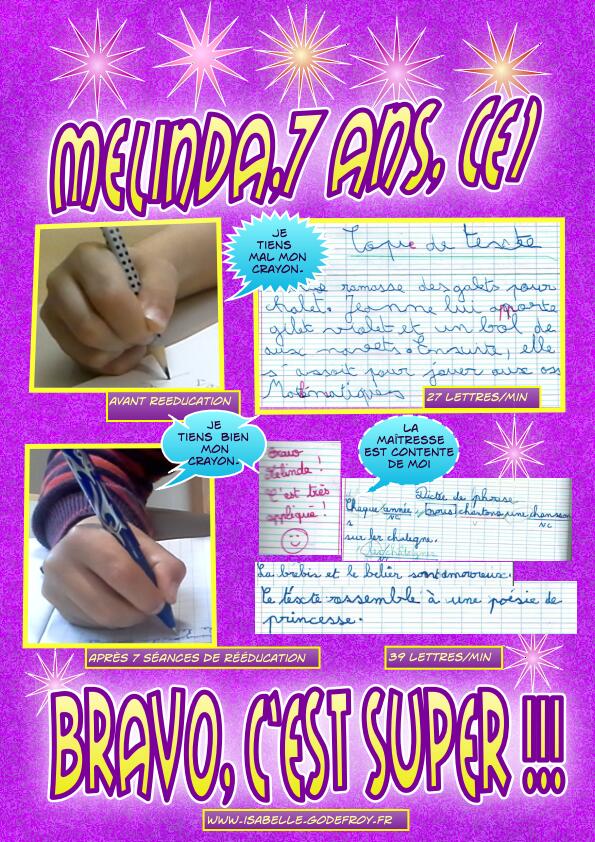 MELINDA, 7 ANS, CE1
JE
TIENS
MAL MON
CRAYON.
Copie de texte
ramasse des galets pour
chalet. Jeanne lui apporte
gilet violet et un bol de
aux navets. Ensuite, elle
s'assoit pour jouer aux os
Matématiques
AVANT REEDUCATION
27 LETTRES/MIN
JE
TIENS BIEN
MON
CRAYON.
Bravo
Melinda !
C'est très
appliqué !
LA
MAÎTRESSE
EST CONTENTE
DE MOI
Dictée de phrase
Chaque année, nous chantons une chanson
NC NC
s
sur les
La brebis et le bélier sont amoureux.
Le texte ressemble à une poésie de
princesse.
APRÈS 7 SÉANCES DE RÉÉDUCATION
39 LETTRES/MIN
BRAVO, C'EST SUPER !!!
WWW.ISABELLE-GODEFROY.FR